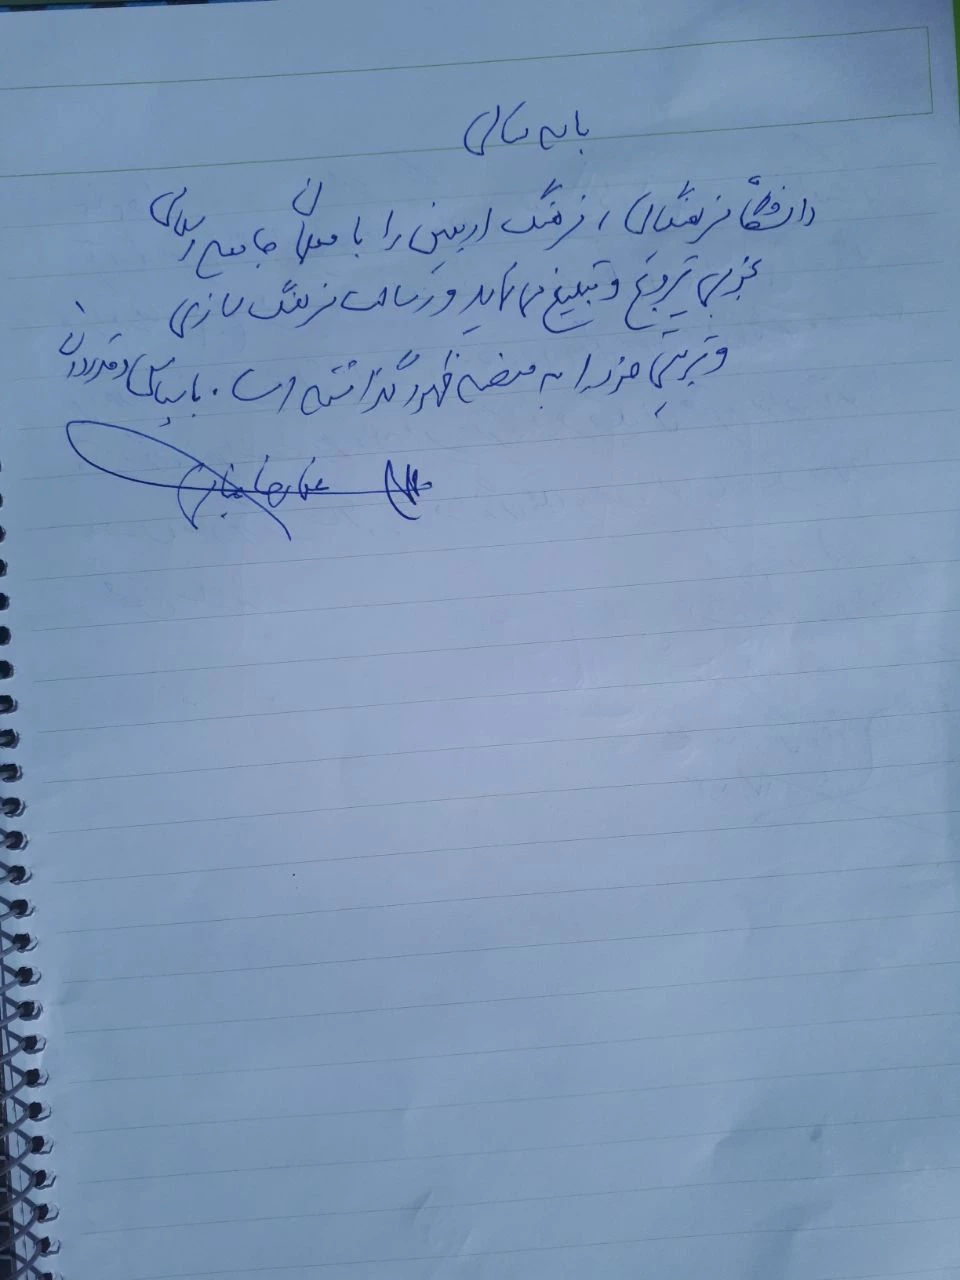 باسمه تعالی
دانشگاه فرهنگیان، فرهنگ اربعین را با جامعه
بخوبی ترویج و تبلیغ می نماید و رسالت فرهنگ سازی
و تربیتی خود را به منصه ظهور گذاشته است. با سپاس و قدردانی